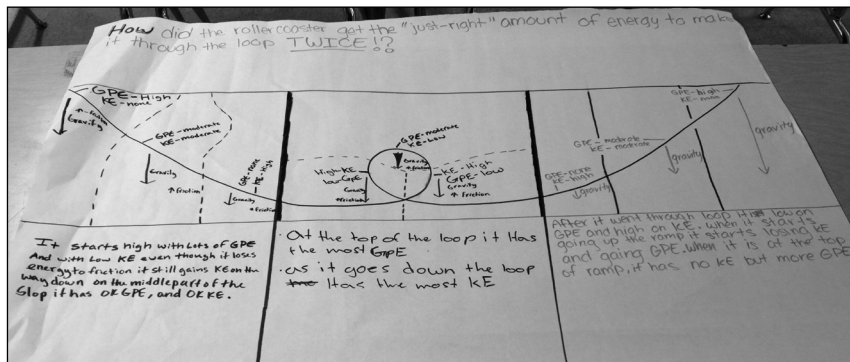 How did the rollercoaster get the "just-right" amount of energy to make
it through the loop TWICE!?
GPE-High
KE-none
↑ friction
Gravity
GPE-moderate
KE-moderate
Gravity
↑ friction
GPE-none
KE-High
Gravity
↑ friction
GPE-moderate
KE-low
Gravity
↑ friction
High KE
low GPE
Gravity
↑ friction
KE-High
GPE-low
Gravity
↑ friction
GPE-none
KE-high
gravity
GPE-moderate
KE-moderate
gravity
GPE-high
KE-none
gravity
It starts high with Lots of GPE
And with Low KE even though it loses
energy to friction it still gains KE on the
way down on the middle part of the
Slop it has OK GPE, and OK KE.
· At the top of the loop it Has
the most GPE
· as it goes down the loop
Has the most KE
After it went through loop it is low on
GPE and high on KE. when it starts
going up the ramp it starts losing KE
and gaing GPE. when it is at the top
of ramp, it has no KE but more GPE